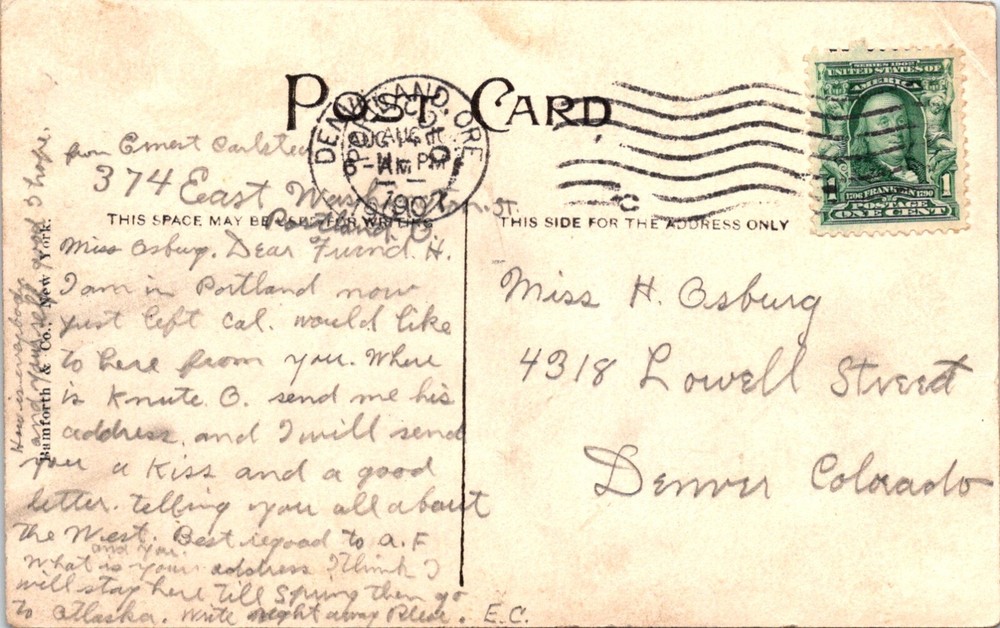 POST CARD
SERIES 1902
UNITED STATES OF
AMERICA
1706 FRANKLIN 1790
POSTAGE
ONE CENT
1 1
PORTLAND, ORE
AUG
PM
1907
from Ernest Carlsten
374 East Washington St.
Portland O.
THIS SPACE MAY BE USED FOR WRITING
THIS SIDE FOR THE ADDRESS ONLY
Miss Osburg. Dear Friend. H.
I am in Portland now
just left Cal. would like
to here from you. Where
is Knute. O. send me his
address. and I will send
you a Kiss and a good
letter. telling you all about
the West. Best regood to A. F
and you.
What is your address I think I
will stay here till Spring then go
to Atlaska. Write right away Please. E.C.
How is everybody
and yourself good I hope.
Bamforth & Co., New York.
Miss H. Osburg
4318 Lowell Street
Denver Colorado